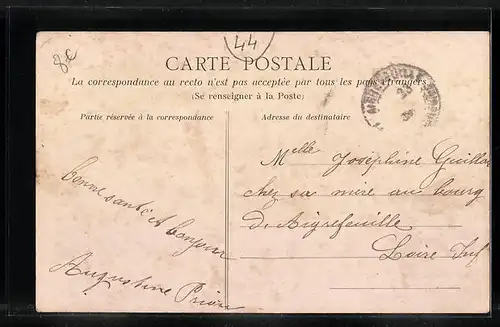 8€
44
CARTE POSTALE
La correspondance au recto n'est pas acceptée par tous les pays étrangers
(Se renseigner à la Poste)
Partie réservée à la correspondance
Adresse du destinataire
bonne santé et bonjour
Augustine
Melle Joséphine
chez sa mère au bourg
D. Aigrefeuille
Loire Inf